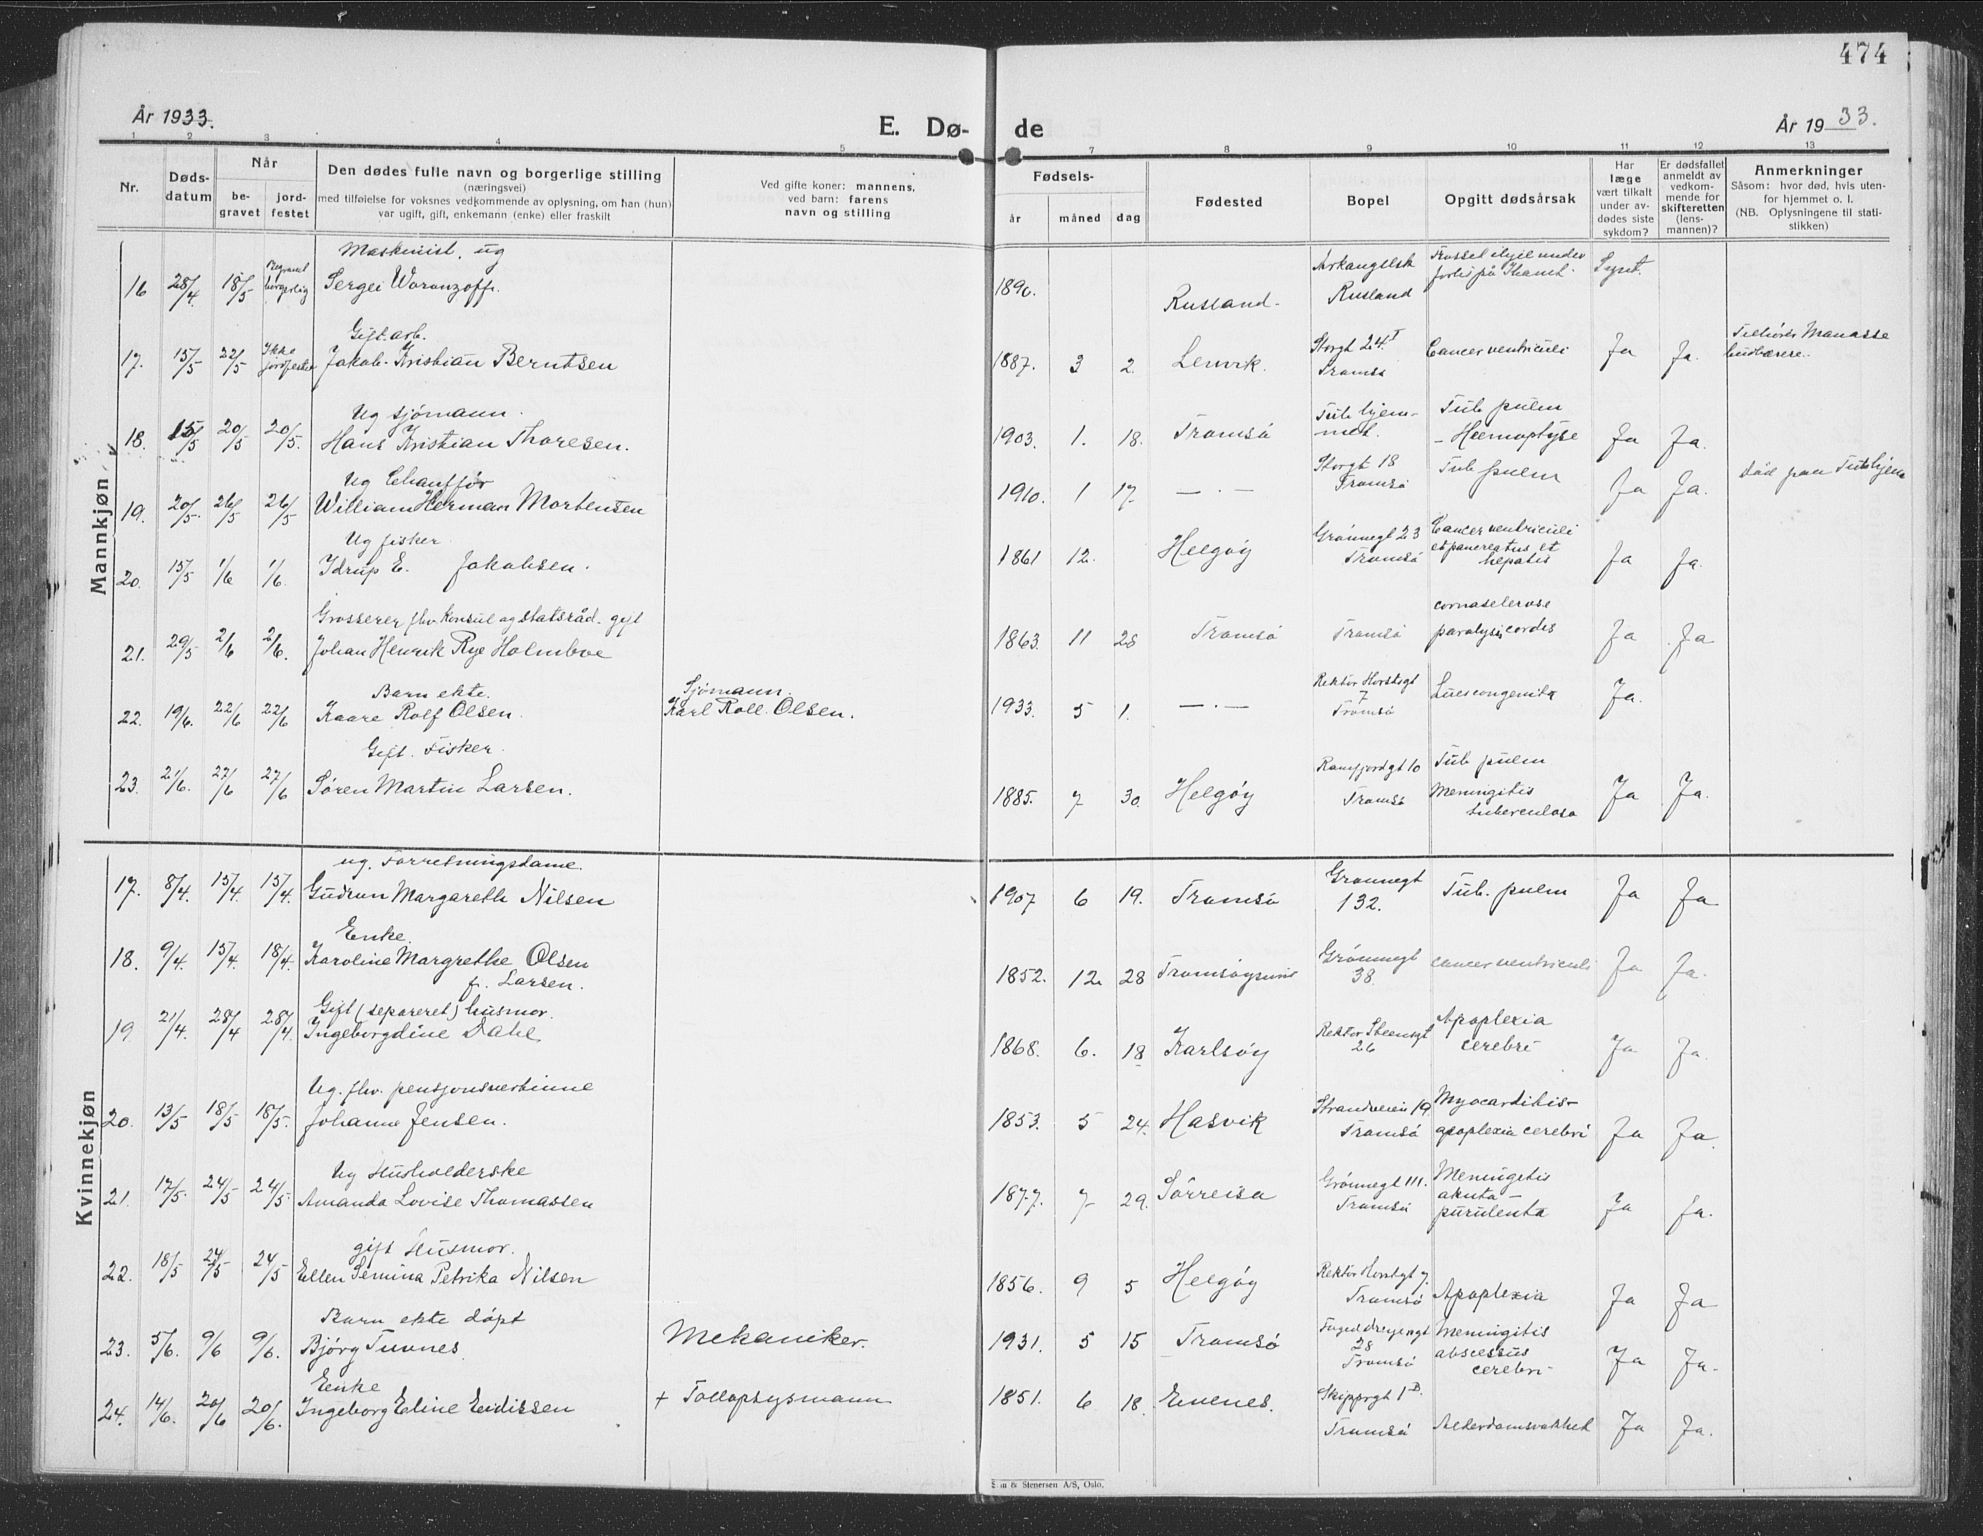 474
År 1933.
E. Dø- de
År 1933.
1 2 3 4 5 7 8 9 10 11 12 13
Nr.
Døds-
datum
Når
be-
gravet
jord-
festet
Den dødes fulle navn og borgerlige stilling
(næringsvei)
med tilføielse for voksnes vedkommende av oplysning, om han (hun)
var ugift, gift, enkemann (enke) eller fraskilt
Ved gifte koner: mannens,
ved barn: farens
navn og stilling
Fødsels-
år måned dag
Fødested
Bopel
Opgitt dødsårsak
Har
læge
vært tilkalt
under av-
dødes siste
sykdom?
Er dødsfallet
anmeldt av
vedkom-
mende for
skifteretten
(lens-
mannen)?
Anmerkninger
Såsom: hvor død, hvis uten-
for hjemmet o. l.
(NB. Oplysningene til stati-
stikken)
Mannkjøn
Maskinist, ug
16 28/4 18/5 Begravet borgerlig Sergei Woronzoff. 1890. Rusland. Arkangelsk Rusland
Gift. arb.
17. 15/5 22/5 Ikke jordfestet Jakob Kristian Berntsen 1887. 3 2. Lenvik. Storgt 24 Tromsø Cancer ventriculi Ja Ja. Tilhører Manasse
Ug sjømann.
18. 15/5 20/5 20/5. Hans Kristian Thoresen. 1903. 1. 18. Tromsø Tub. hjem- met. Tub pulm - Hæmoptyse Ja Ja.
Ug Chauffør
19. 20/5. 26/5 26/5 William Herman Mortensen 1910. 1 17. — · — Storgt 18 Tromsø Tub pulm Ja Ja. Død paa Tubhjem
Ug fisker.
20. 15/5 1/6 1/6. Idrup E. Jakobsen. 1861 12. Helgøy Grønnegt 23 Tromsø Cancer ventriculi et pancreatus et hepatis Ja Ja.
Grosserer fhv. konsul og statsråd. gift
21. 29/5 2/6 2/6. Johan Henrik Rye Holmboe 1863. 11 28 Tromsø Tromsø paralysis cordis Ja Ja
Barn ekte.
22. 19/6. 22/6 22/6 Kaare Rolf Olsen. Sjømann. Karl Roll. Olsen. 1933. 5 1. — · — Rektor Horstgt 7 Tromsø Lues congenita Ja.
Gift. Fisker.
23. 21/6. 27/6 27/6 Søren Martin Larsen. 1885. 7 30. Helgøy Ramfjordgt 10 Tromsø Tub pulm Meningitis tuberculosa Ja Ja.
Kvinnekjøn
ug. Forretningsdame.
17. 8/4. 15/4 15/4. Gudrun Margareth Nilsen 1907 6 19. Tromsø Grønnegt 132. Tub. pulm Ja Ja
Enke.
18. 9/4. 15/4. 18/4. Karoline Margrethe Olsen f. Larsen. 1852. 12. 28 Tromsøysund Grønnegt 38. cancer ventriculi Ja Ja.
Gift (separeret) husmor.
19 21/4. 28/4 28/4 Ingeborgdine Dahl 1868. 6. 18 Karlsøy Rektor Steensgt 26 Apoplexia cerebri Ja Ja.
Ug. fhv. pensjonsvertinne
20. 13/5 18/5 18/5. Johanne Jensen. 1853. 5 24. Hasvik Strandveien 19. Tromsø Myocarditis- apoplexia cerebri Ja Ja.
Ug Husholderske
21. 17/5. 24/5 24/5. Amanda Lovise Thomassen 1877. 7 29. Sørreisa Grønnegt 111. Tromsø Meningitis akuta - purulenta Ja Ja.
gift Husmor.
22. 18/5 24/5 24/5 Ellen Semina Petrika Nilsen 1856. 9 5 Helgøy Rektor Horstgt 7. Tromsø Apoplexia Ja Ja
Barn ekte døpt
23. 5/6. 9/6 9/6. Bjørg Tunnes. Mekaniker. 1931. 5 15 Tromsø 28 Tromsø Meningitis abscessus cerebri Ja Ja.
Enke
24. 14/6. 20/6 20/6. Ingeborg Eline Eidissen + Tollopsysmann 1851. 6 18. Evenes. Skippergt 1 B. Tromsø Alderdomsvakhet Ja Ja.
& Stenersen A/S, Oslo.